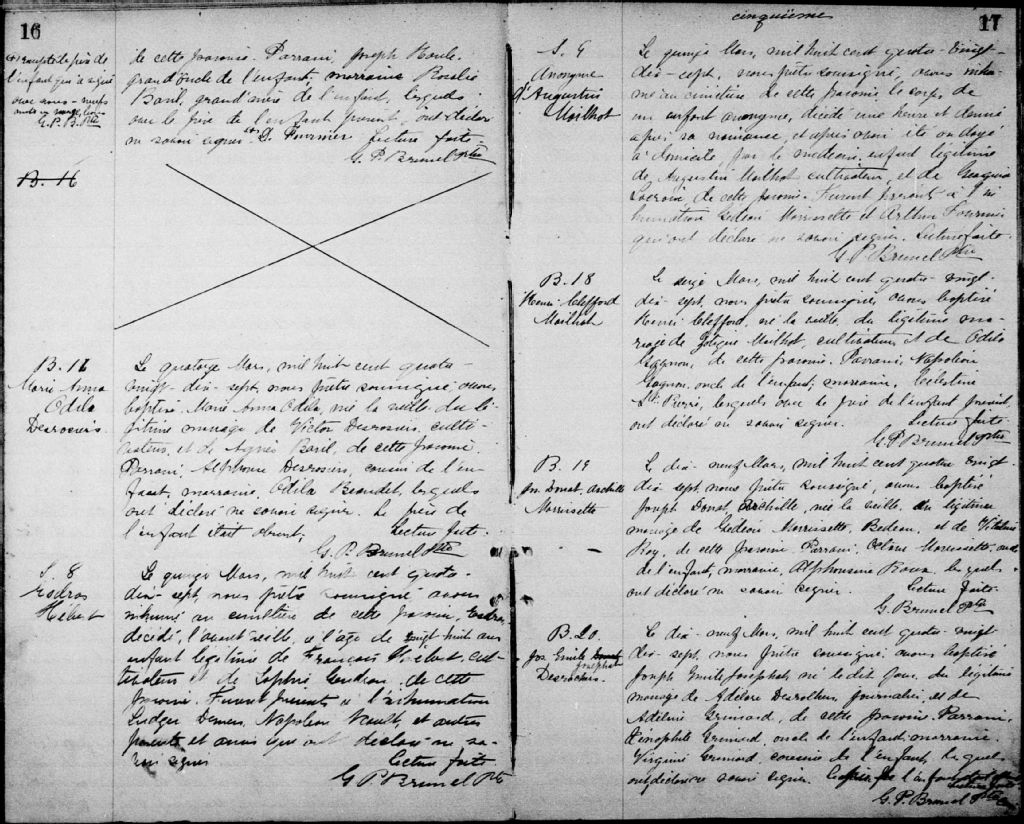 16
l'enfant qui a signé
avec nous
G. P. B. Ptre
de cette paroisse. Parrain, Joseph Houle,
grand'oncle de l'enfant, marraine Rosalie
Baril, grand'mère de l'enfant, lesquels
ont déclaré
ne savoir signer. Fournier Lecture faite.
G. P. Brunel Ptre
B. 16
B. 17
Marie Anna
Odila
Desrosiers.
Le quatorze Mars, mil huit cent quatre-
vingt-dix-sept, nous prêtre soussigné avons
baptisé Marie Anna Odila, née la veille du lé-
gitime mariage de Victor Desrosiers, culti-
vateur, et de Agnès Baril, de cette paroisse.
Parrain, Alphonse Desrosiers, cousin de l'en-
fant, marraine, Odila Beaudet, lesquels
ont déclaré ne savoir signer. Le père de
l'enfant était absent. Lecture faite.
G. P. Brunel Ptre
S. 8
Esdras
Hébert
Le quinze Mars, mil huit cent quatre-
dix-sept, nous prêtre soussigné avons
inhumé au cimetière de cette paroisse, Esdras,
décédé, l'avant veille, à l'âge de vingt huit ans
enfant légitime de François Hébert, cul-
tivateur et de Sophie Gendron, de cette
paroisse. Furent présents à l'inhumation
Ludger Demers, Napoléon et autres
parents et amis qui ont déclaré ne sa-
voir signer Lecture faite
G P Brunel Ptre
cinquième
17
S. 9
Anonyme
d'Augustin
Mailhot
Le quinze Mars, mil huit cent quatre-vingt-
dix-sept, nous prêtre soussigné, avons inhu-
mé au cimetière de cette paroisse, le corps de
un enfant anonyme, décédé une heure et demie
après sa naissance, et après avoir été ondoyé
à domicile, par le médecin, enfant légitime
de Augustin Mailhot cultivateur et de
Lacroix, de cette paroisse. Furent présents à l'in-
humation Gédéon Morrissette et Arthur Fournier
qui ont déclaré ne savoir signer. Lecture faite.
G P Brunel Ptre
B. 18
Henri Clifford
Mailhot
Le seize Mars, mil huit cent quatre-vingt-
dix-sept, nous prêtre soussigné, avons baptisé
Henri Clifford, né la veille, du légitime ma-
riage de Zotique Mailhot, cultivateur, et de Odila
Gagnon, de cette paroisse. Parrain, Napoléon
Gagnon, oncle de l'enfant, marraine, Célestine
St. Pierre, lesquels avec le père de l'enfant présent,
ont déclaré ne savoir signer. Lecture faite.
G P Brunel Ptre
B. 19
Jos. Donat, Archille
Morrissette
Le dix-neuf Mars, mil huit cent quatre vingt-
dix sept, nous prêtre soussigné, avons baptisé
Joseph Donat, Archille, né la veille, du légitime
mariage de Gédéon Morrissette, Bedeau, et de
Roy, de cette paroisse. Parrain, Octave Morrissette, oncle
de l'enfant, marraine, Alphonsine Roux, lesquels
ont déclaré ne savoir signer. Lecture faite.
G. Brunel Ptre
B. 20.
Jos Emile Josephat
Desrochers.
Le dix-neuf Mars, mil huit cent quatre-vingt-
dix-sept, nous prêtre soussigné avons baptisé
Joseph Emile Josephat, né le dit jour, du légitime
mariage de Adélard Desrochers, journalier, et de
Adéline Grimard, de cette paroisse. Parrain,
Théophile Grimard, oncle de l'enfant, marraine,
Virginie Grimard, cousine de l'enfant, lesquels
ont déclaré ne savoir signer.
Lecture faite
G. P. Brunel Ptre